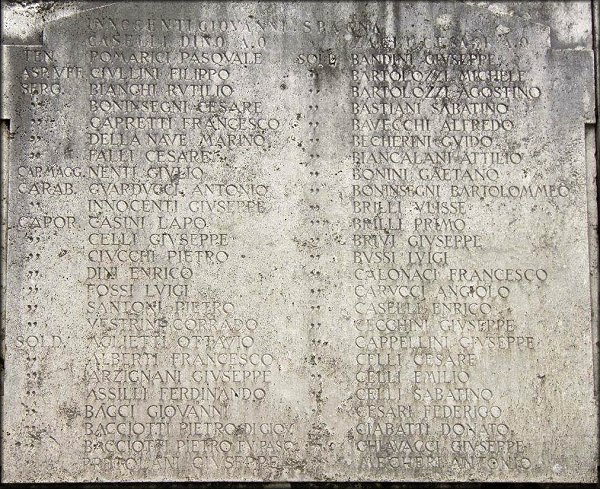 INNOCENTI GIOVANNI
CASELLI DINO A.O.
TEN. POMARICI PASQVALE
ASP.VFF. CIVLLINI FILIPPO
SERG. BIANGHI RVTILIO
" BONINSEGNI CESARE
" CAPRETTI FRANCESCO
" DELLA NAVE MARINO
" FALLI CESARE
CAP.MAGG. NENTI GIVLIO
CARAB. GVARDVCCI ANTONIO
" INNOCENTI GIVSEPPE
CAPOR. CASINI LAPO
" CELLI GIVSEPPE
" CIVCCHI PIETRO
" DINI ENRICO
" FOSSI LVIGI
" SANTONI PIETRO
" VESTRINI CORRADO
SOLD. AGLIETTI OTTAVIO
" ALBERTI FRANCESCO
" ARZIGNANI GIVSEPPE
" ASSILLI FERDINANDO
" BACCI GIOVANNI
" BACCIOTTI PIETRO DI GIOV.
" BACCIOTTI PIETRO FV PASQ.
" GIVSEPPE
SPAGNA
A.O.
SOLD. BANDINI GIVSEPPE
" BARTOLOZZI MICHELE
" BARTOLOZZI AGOSTINO
" BASTIANI SABATINO
" BAVECCHI ALFREDO
" BECHERINI GVIDO
" BIANCALANI ATTILIO
" BONINI GAETANO
" BONINSEGNI BARTOLOMMEO
" BRILLI VLISSE
" BRILLI PRIMO
" BRIVI GIVSEPPE
" BVSSI LVIGI
" CALONACI FRANCESCO
" CARVCCI ANGIOLO
" CASELLI ENRICO
" CECCHINI GIVSEPPE
" CAPPELLINI GIVSEPPE
" CELLI CESARE
" CELLI EMILIO
" CELLI SABATINO
" CESARI FEDERIGO
" CIABATTI DONATO
" CHIAVACCI GIVSEPPE
" ANTONIO